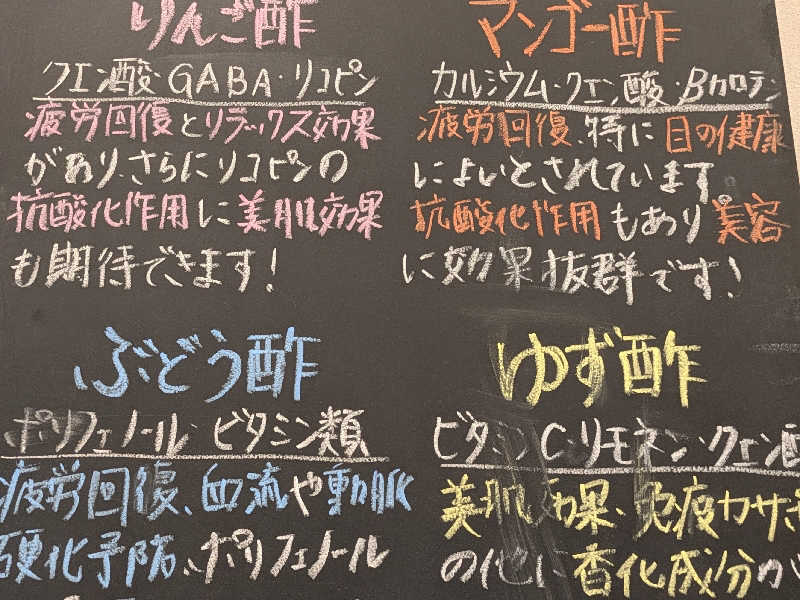 りんご酢
クエン酸・GABA・リコピン
疲労回復とリラックス効果
があり、さらにリコピンの
抗酸化作用に美肌効果
も期待できます!
マンゴー酢
カルシウム・クエン酸・Bカロテン
疲労回復、特に目の健康
によいとされています
抗酸化作用もあり美容
に効果抜群です!
ぶどう酢
ポリフェノール・ビタミン類
疲労回復、血流や動脈
硬化予防、ポリフェノール
ゆず酢
ビタミンC・リモネン・クエン酸
美肌効果、免疫力サポ
の他に香化成分が